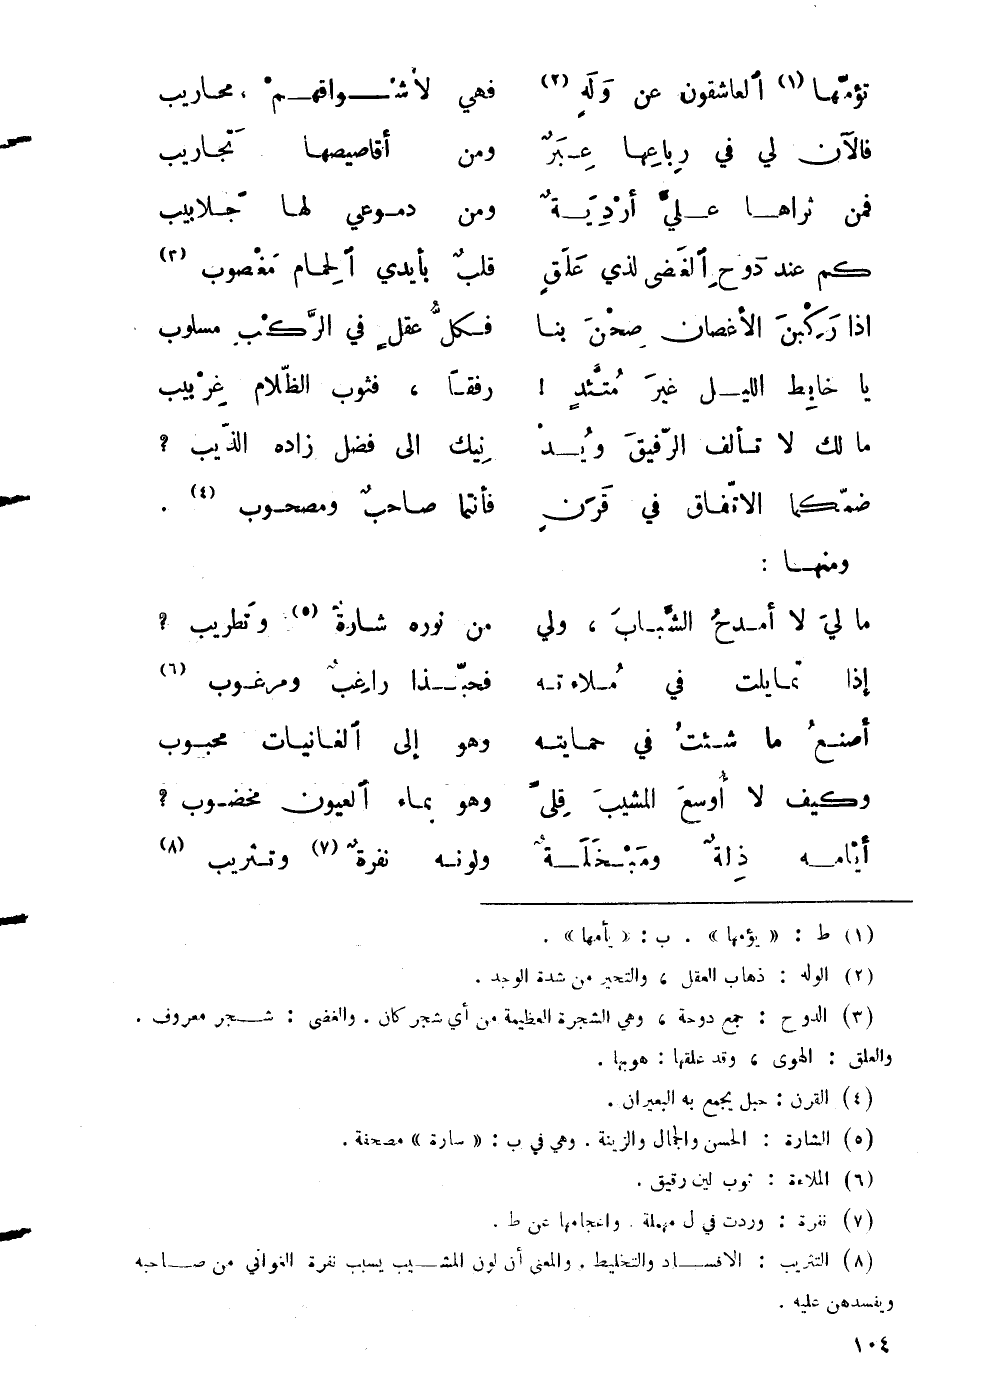 تؤمّها (١) ٱلعاشقون عن وَلَهٍ (٢) فهي لأشْواقهمْ ، محاريب
فالآن لي في رِباعِها عِبَرٌ ومن أقاصيصها تَجاريب
فمن ثراها عليَّ أرْدِيَةٌ ومن دموعي لها جَلابيب
كم عند دَوحِ ٱلغَضى لذي عَلَقٍ قلبٌ بأيدي ٱلحِمام مَغْصوب (٣)
اذا رَكِبْنَ الأغصان صِحْنَ بنا فكلُّ عقلٍ في الرَّكْبِ مسلوب
يا خابِط الليل غيرَ مُتَّئدٍ ! رفقاً ، فثوب الظّلام غِرْبيب
ما لك لا تألف الرّفيقَ ويُدْ نِيك الى فضل زاده الذّيب ?
ضمّكما الاتّفاق في قَرَنٍ فأنتما صاحبٌ ومصحوب (٤) .
ومنها :
ما ليَ لا أمدحُ الشَّبابَ ، ولي من نوره شارةٌ (٥) وتَطريب ?
إذا تمايلت في مُلاءته فحبّذا راغبٌ ومرغوب (٦)
أصنعُ ما شئتُ في حمايته وهو إلى ٱلغانيات محبوب
وكيف لا أُوسعَ المشيبَ قِلىً وهو بماء ٱلعيون مخضوب ?
أيّامه ذِلةٌ ومَبْخَلَةٌ ولونه نفرةٌ (٧) وتثريب (٨)
(١) ط : « يؤمها » . ب : « يأمها » .
(٢) الوله : ذهاب العقل ، والتحير من شدة الوجد .
(٣) الدوح : جمع دوحة ، وهي الشجرة العظيمة من أي شجر كان . والغضى : شجر معروف .
والعلق : الهوى ، وقد علقها : هويها .
(٤) القرن : حبل يجمع به البعيران .
(٥) الشارة : الحسن والجمال والزينة . وهي في ب : « سارة » مصحفة .
(٦) الملاءة : ثوب لين رقيق .
(٧) نفرة : وردت في ل مهملة . واعجامها عن ط .
(٨) التثريب : الافساد والتخليط . والمعنى أن لون المشيب يسبب نفرة الغواني من صاحبه
ويفسدهن عليه .
١٠٤